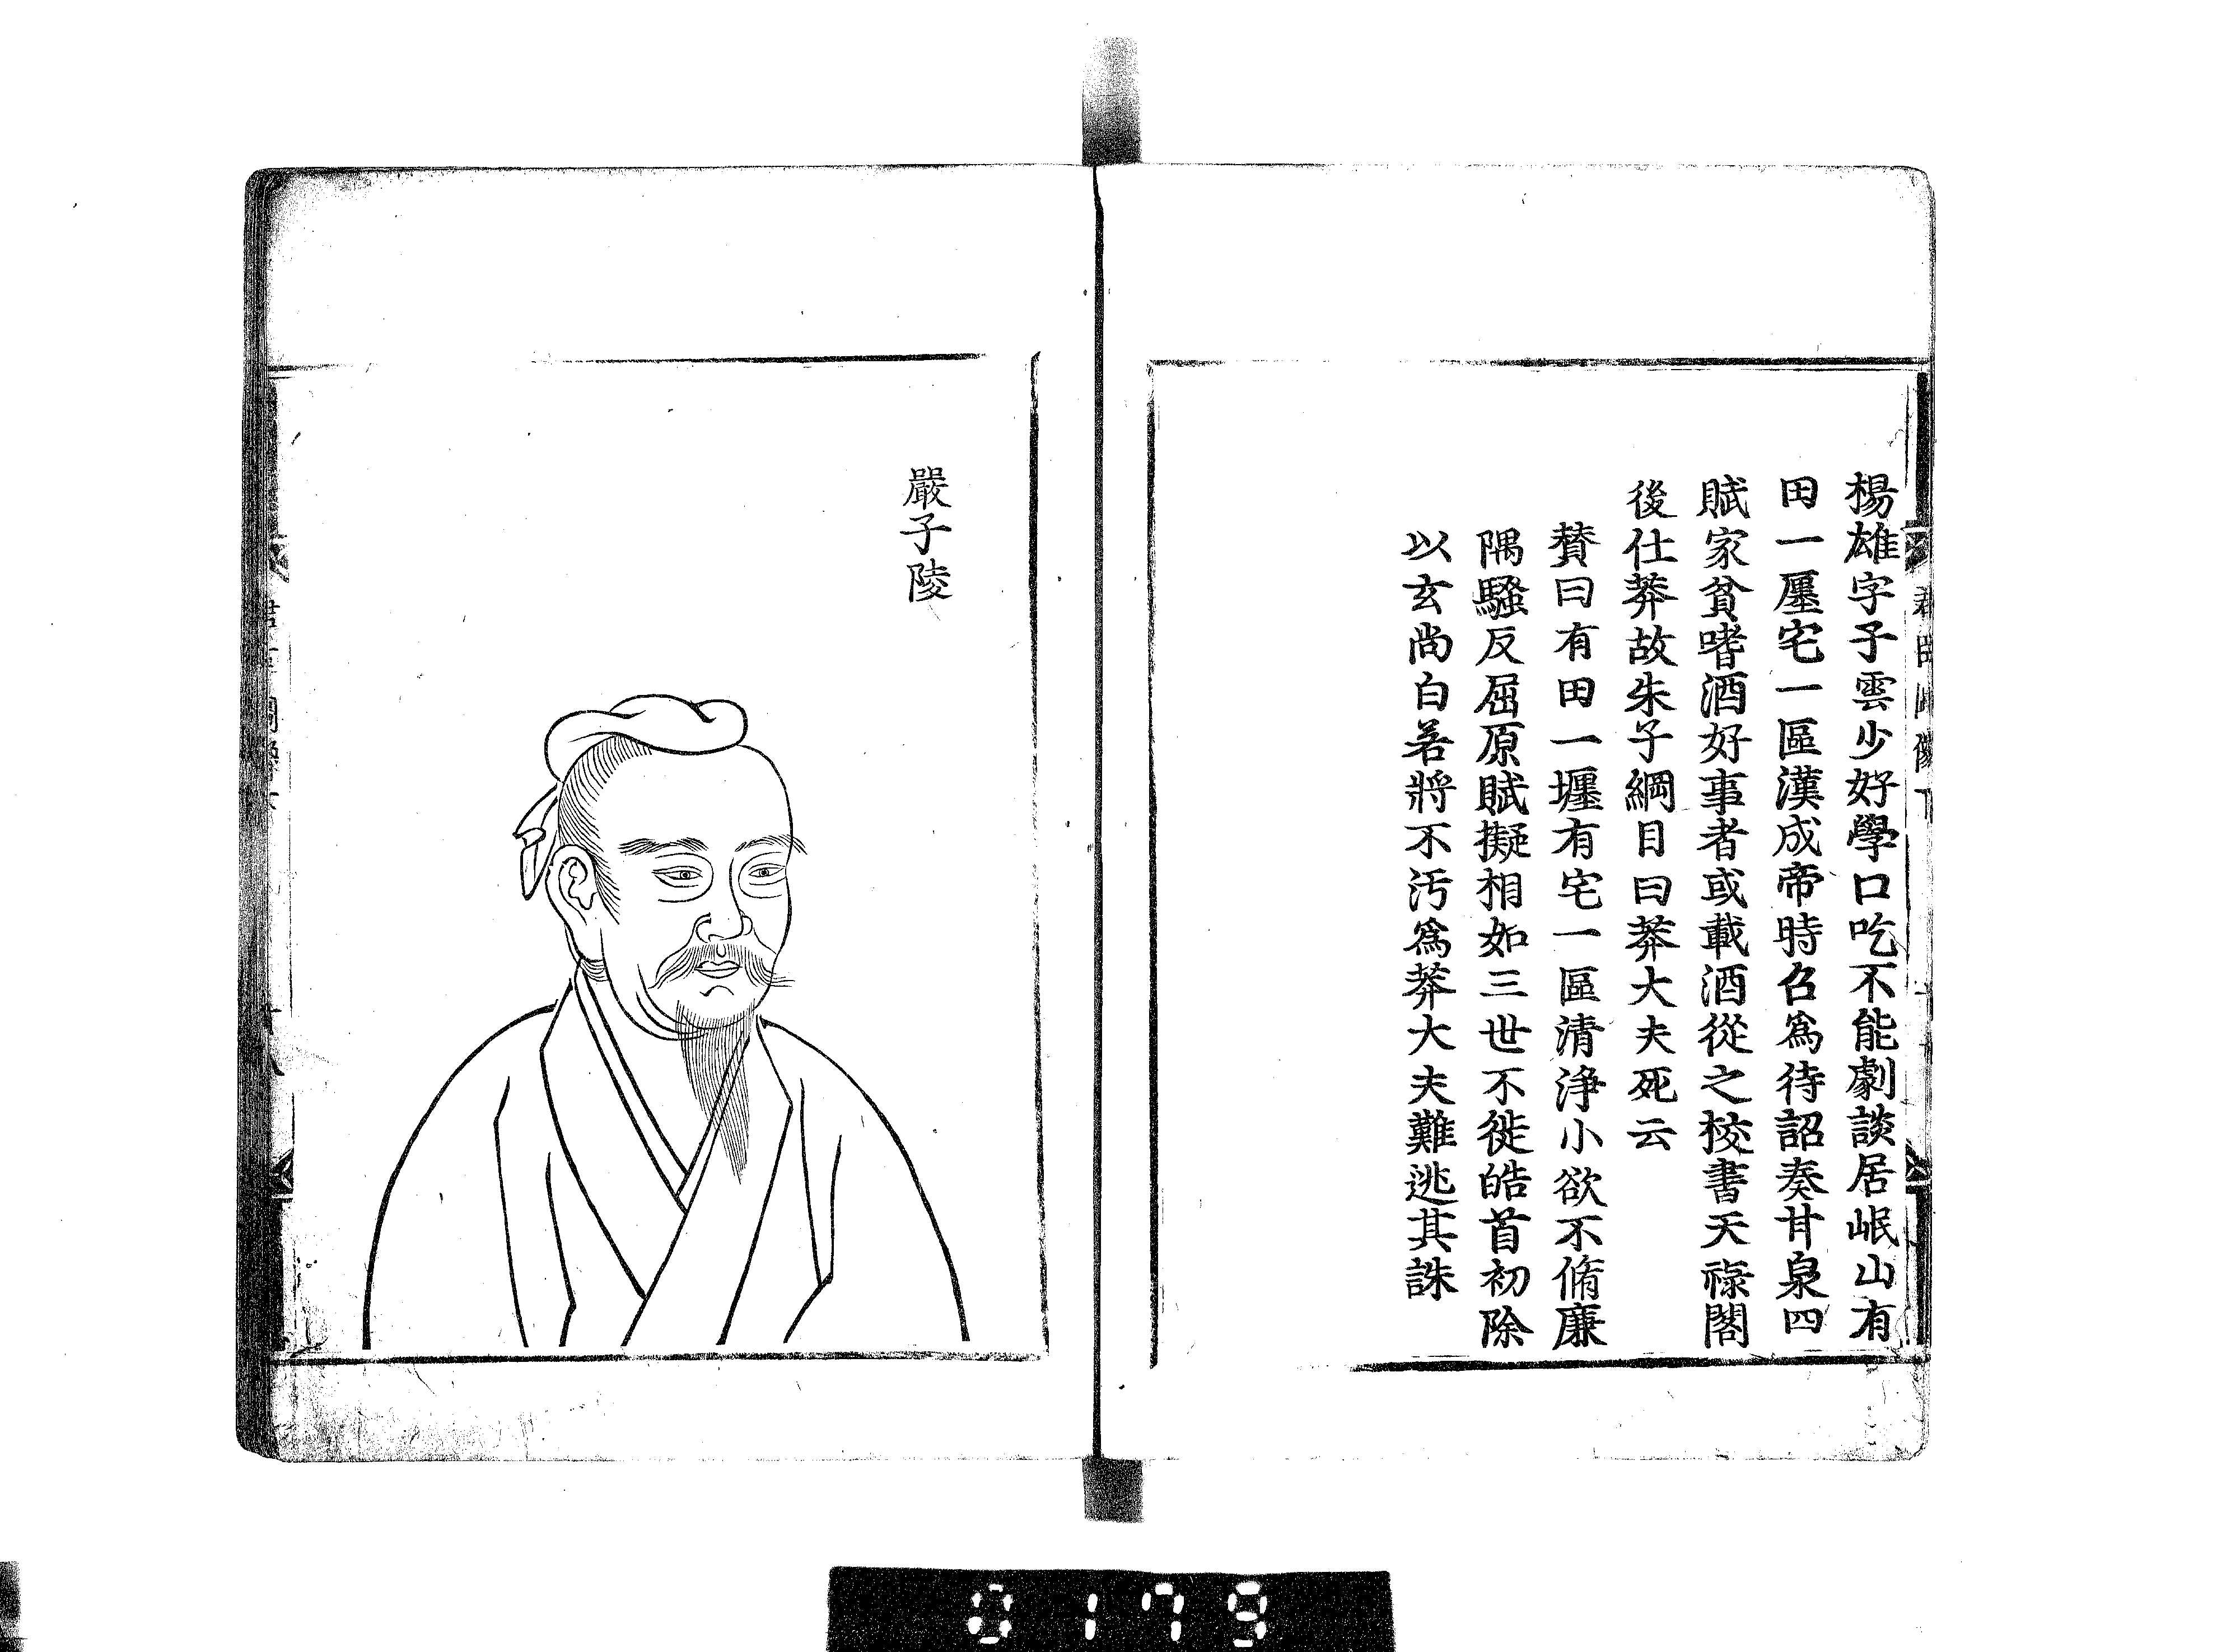 楊雄字子雲少好學口吃不能劇談居岷山有
田一廛宅一區漢成帝時召爲待詔奏甘泉四
賦家貧嗜酒好事者或載酒從之校書天祿閣
後仕莽故朱子綱目曰莽大夫死云
賛曰有田一壥有宅一區清淨小欲不脩廉
隅騷反屈原賦擬相如三世不徙皓首初除
以玄尚白若將不汚爲莽大夫難逃其誅
嚴子陵
0179